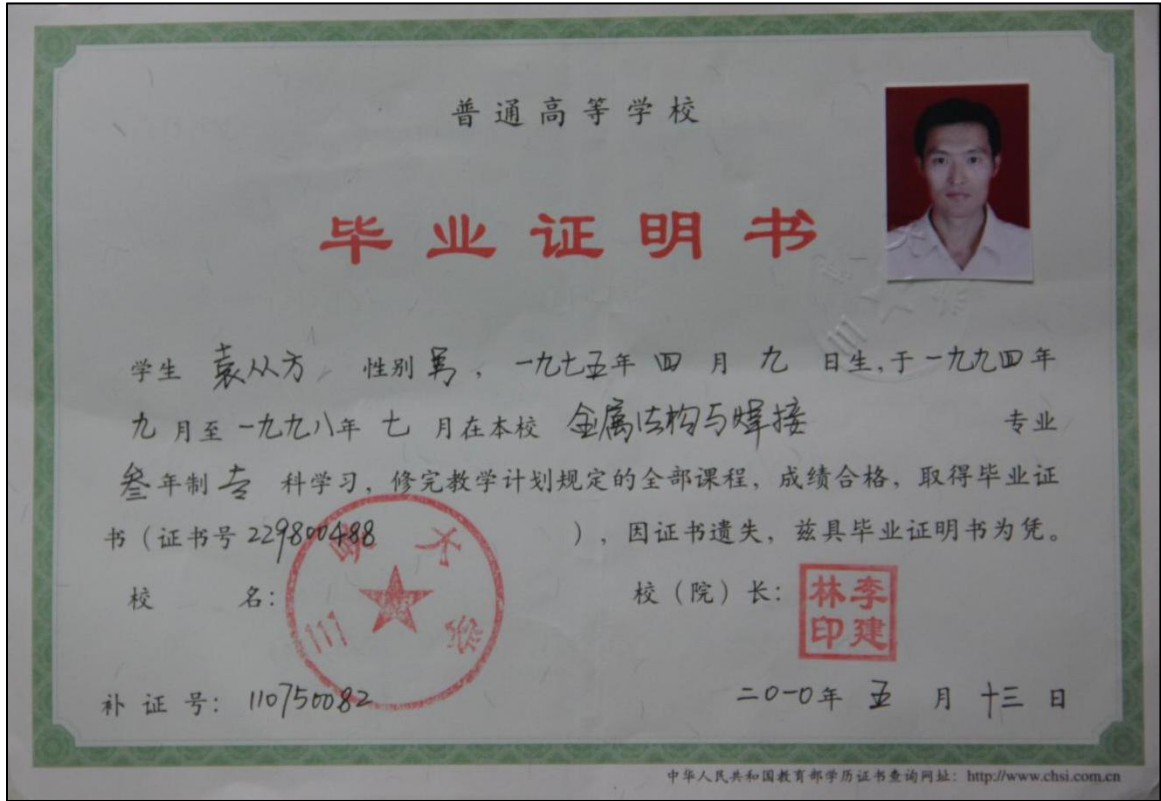 普通高等学校
毕业证明书
学生 袁从方 性别 男，一九七五年 四 月 九 日生,于一九九四年
九 月至一九九八年 七 月在本校 金属结构与焊接 专业
叁年制 专 科学习，修完教学计划规定的全部课程，成绩合格，取得毕业证
书（证书号 229800488 ），因证书遗失，兹具毕业证明书为凭。
校 名： 三峡大学
校（院）长： 李建林印
补证号：110750082
二〇一〇年 五 月 十三 日
中华人民共和国教育部学历证书查询网址：http://www.chsi.com.cn